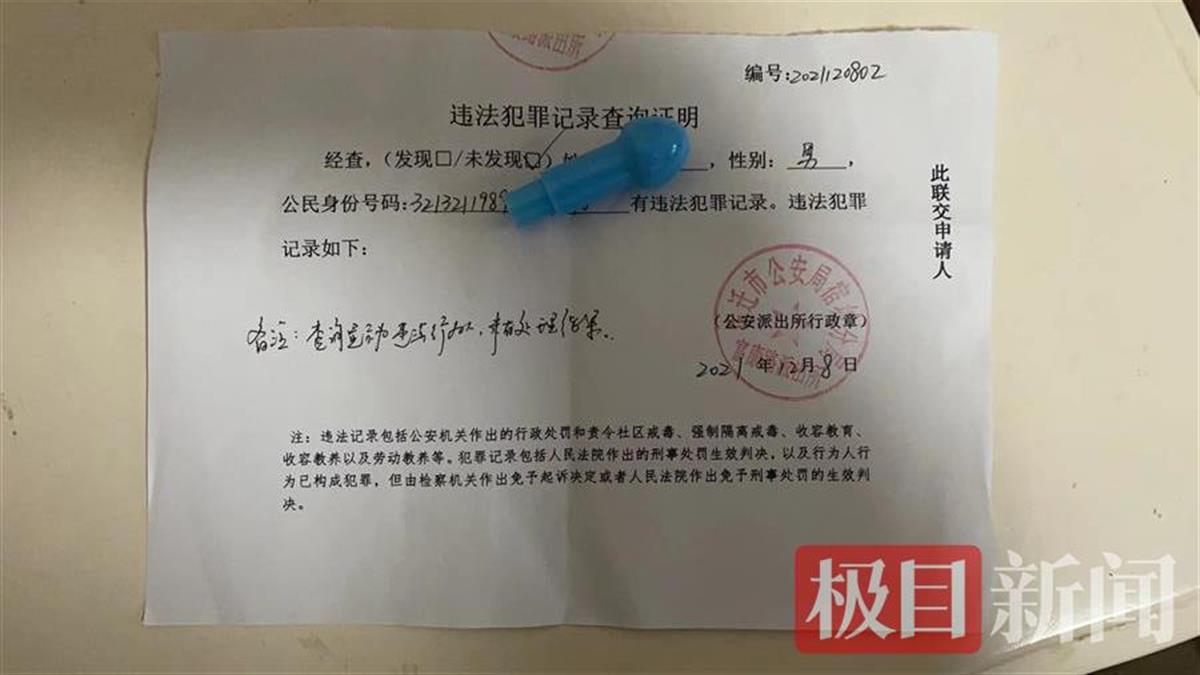 康路派出所
编号:2021120802
违法犯罪记录查询证明
经查，（发现□/未发现☑） ，性别：男，
公民身份号码:321321198 有违法犯罪记录。违法犯罪
记录如下：
此联交申请人
宿迁市公安局宿 分局
（公安派出所行政章）
派出所
2021年12月8日
备注：查询 违法行为，未有处理结果。
注：违法记录包括公安机关作出的行政处罚和责令社区戒毒、强制隔离戒毒、收容教育、
收容教养以及劳动教养等。犯罪记录包括人民法院作出的刑事处罚生效判决，以及行为人行
为已构成犯罪，但由检察机关作出免予起诉决定或者人民法院作出免予刑事处罚的生效判
决。
极目新闻